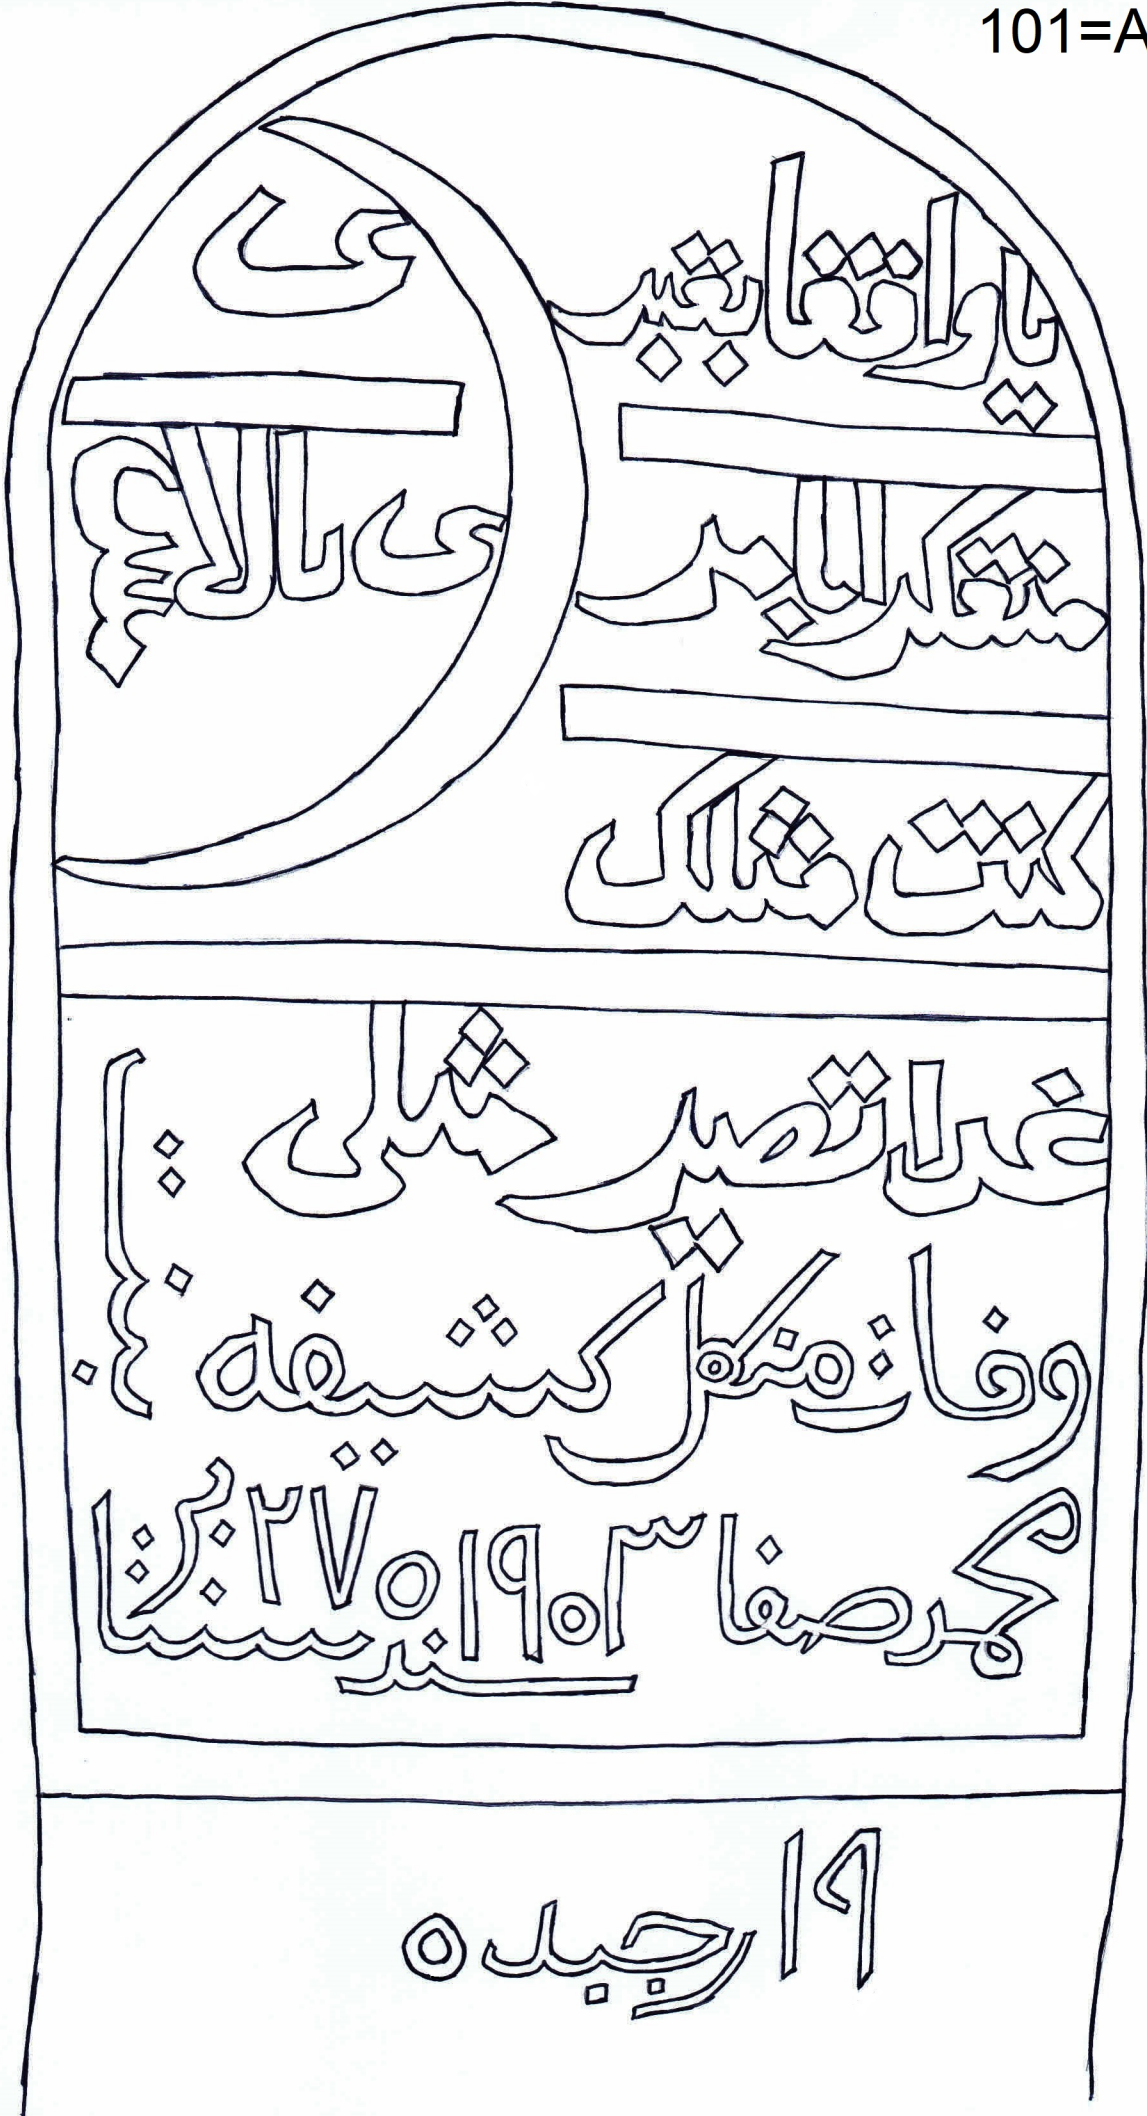 101=A
ياواقفا بقبر ى
متفكرا ى بالا
كنت مثلك
غدا تصير مثلى
وفات منكل كشيفه
محمد صفا ١٩٠٣ ٢٧
١٩ رجبده